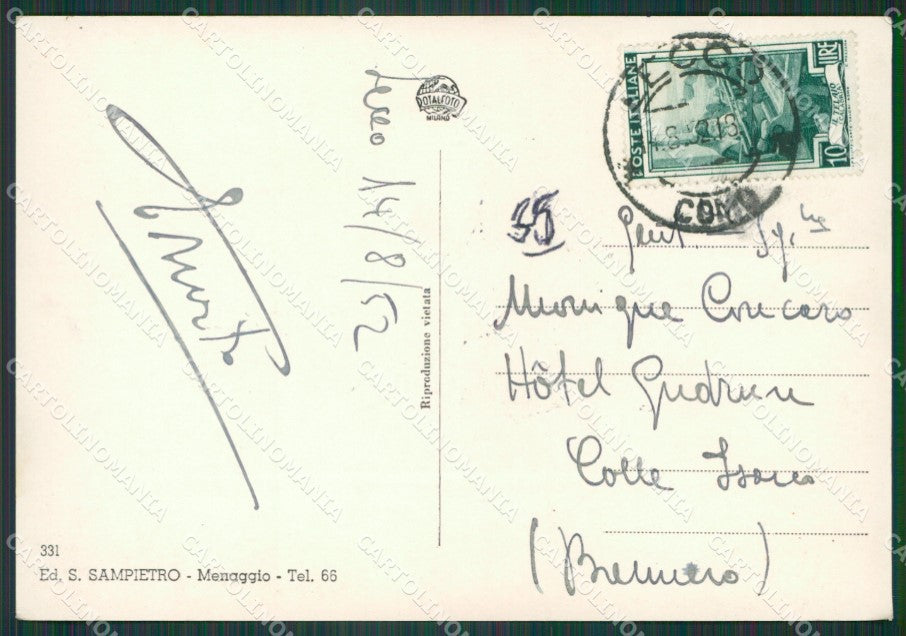 Lecco 14/8/52
ROTALFOTO
MILANO
Riproduzione vietata
331
Ed. S. SAMPIETRO - Menaggio - Tel. 66
POSTE ITALIANE
LIRE
10
LECCO
COMO
35
Gent. Sg.na
Monique Concaro
Hôtel Gudrun
Colle Isarco
(Brennero)
CARTOLINOMANIA